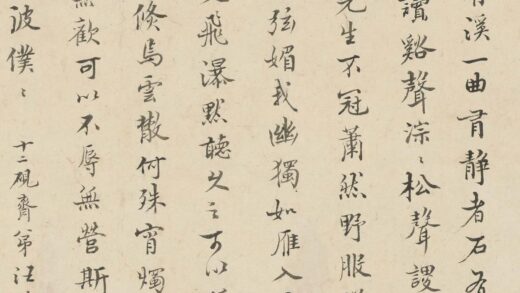 溪一曲有靜者石
讀谿聲淙〻松聲謖
先生不冠蕭然野服
弦媚我幽獨如雁入
飛瀑默聽久之可以
倏烏雲散何殊宵燭
無歡可以不辱無營斯
波僕〻 十二硯齋弟汪